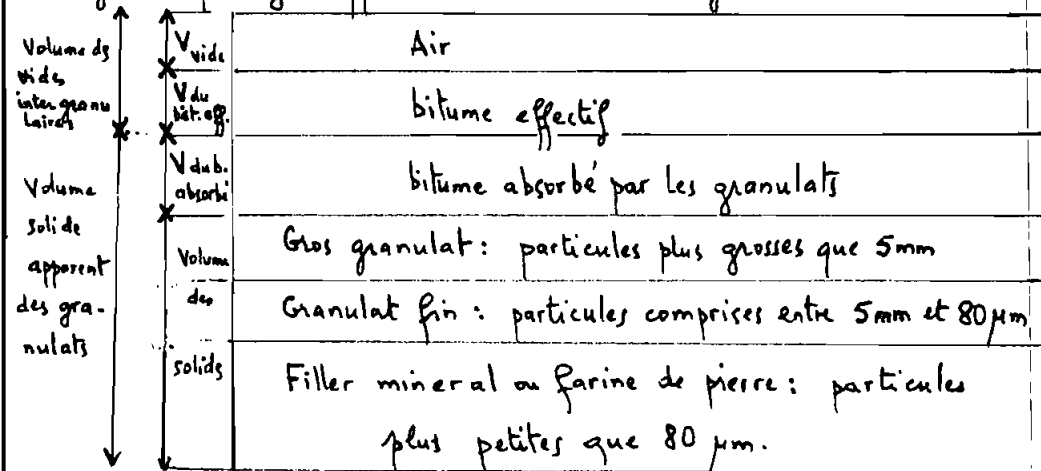 Volume ds
vides
inter granu
laires
Volume
solide
apparent
des gra-
nulats
V vide
V du
bit. eff.
V du b.
absorbé
Volume
des
solids
Air
bitume effectif
bitume absorbé par les granulats
Gros granulat : particules plus grosses que 5mm
Granulat fin : particules comprises entre 5mm et 80 μm
Filler mineral ou farine de pierre : particules
plus petites que 80 μm.